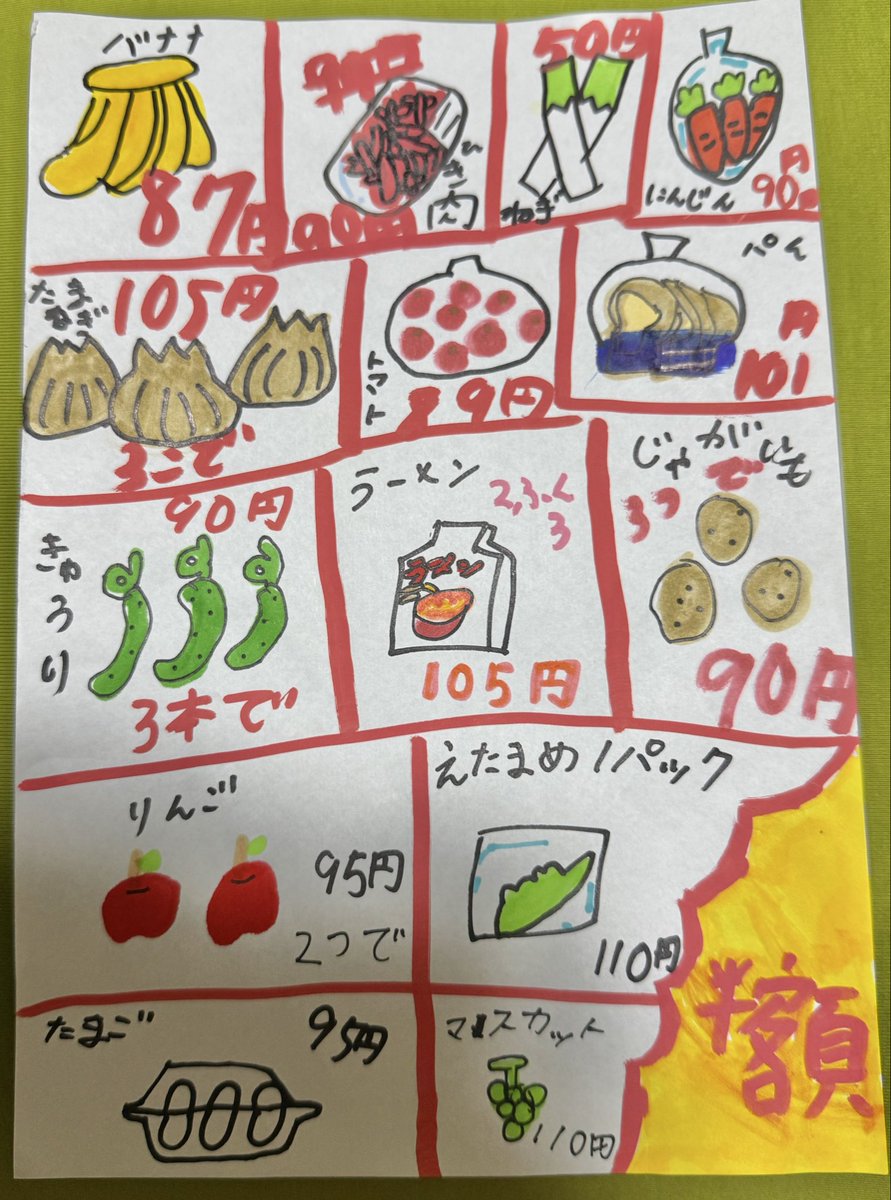 バナナ
87円
90円
ぎ肉
50円
ねぎ
にんじん
円
90
たまねぎ
105円
3こで
トマト
89円
パん
円
101
90円
きゅうり
3本で
ラーメン
ラーメン
105円
じゃがいも
3つで
90円
りんご
95円
2つで
えたまめ1パック
110円
たまご
95円
マスカット
110円
半額